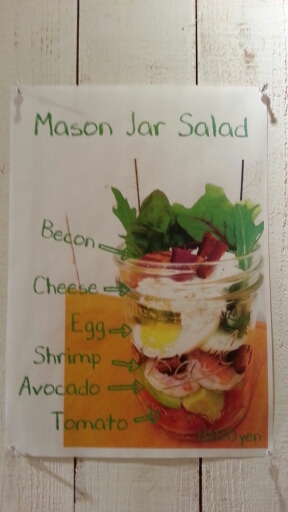 Mason Jar Salad
Becon
Cheese
Egg
Shrimp
Avocado
Tomato
yen